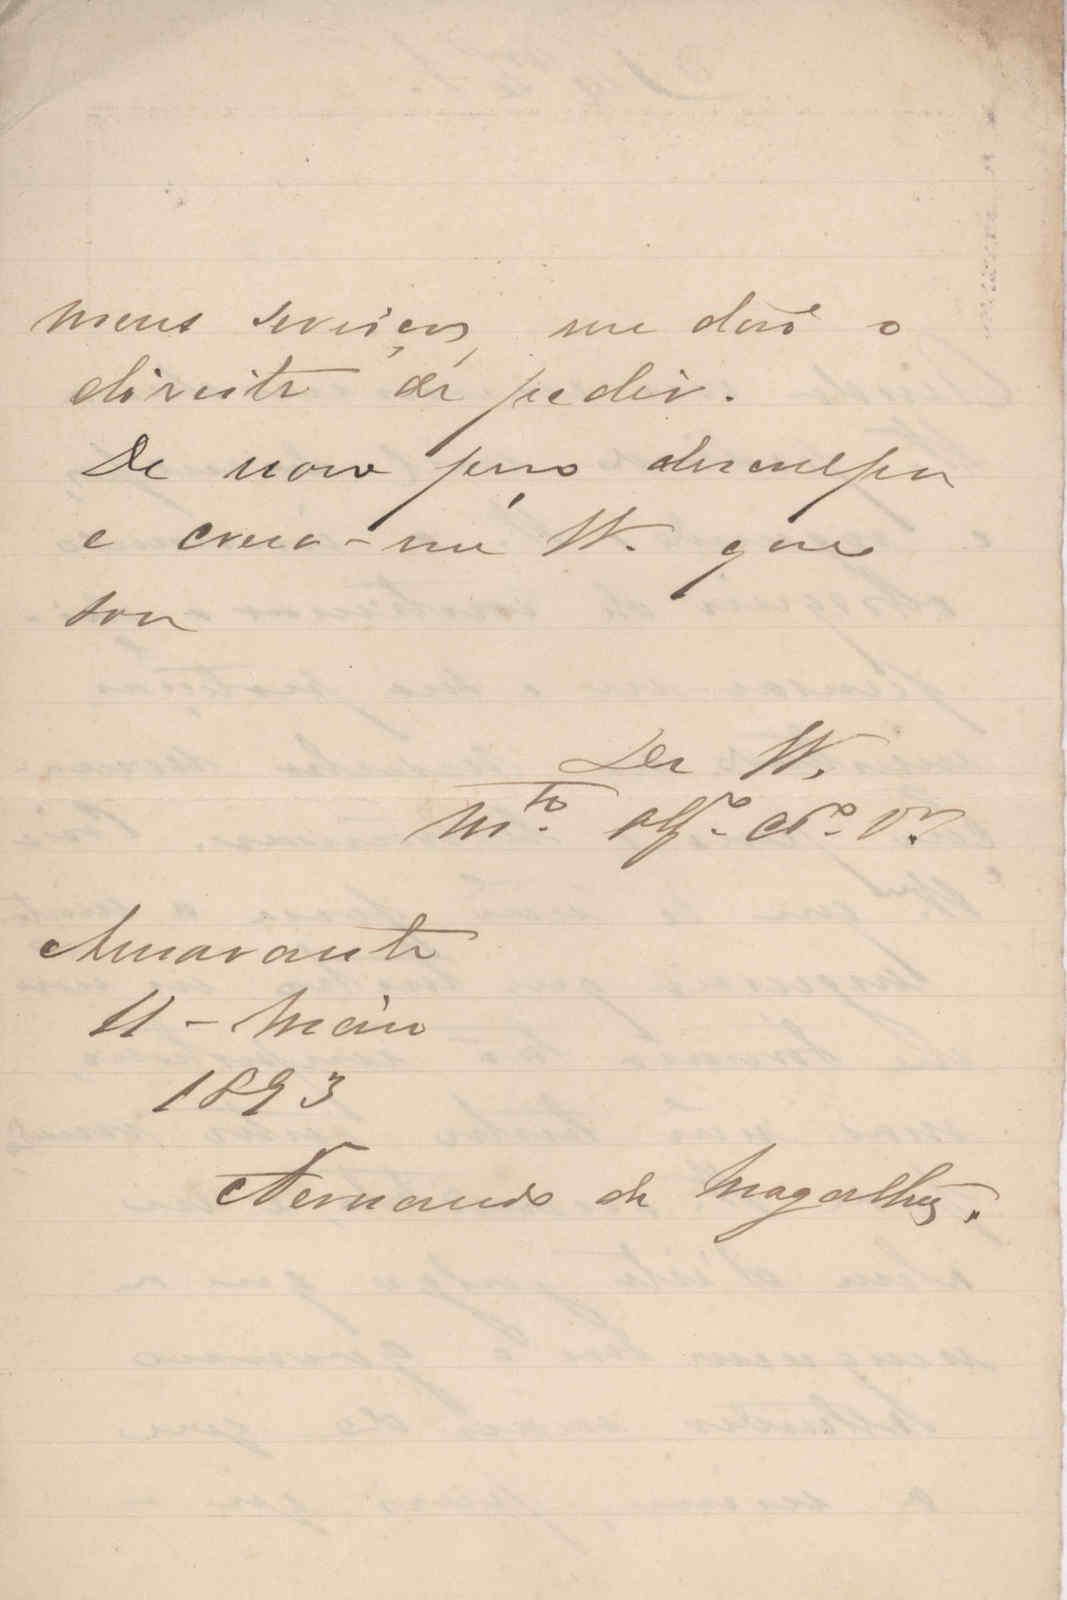 meus serviços, me dará o
direito de pedir.
De novo peço desculpa
e creia-me V. que
sou
De V.
M.to
Amarante
11 - Maio
1893
Fernando de Magalhães.